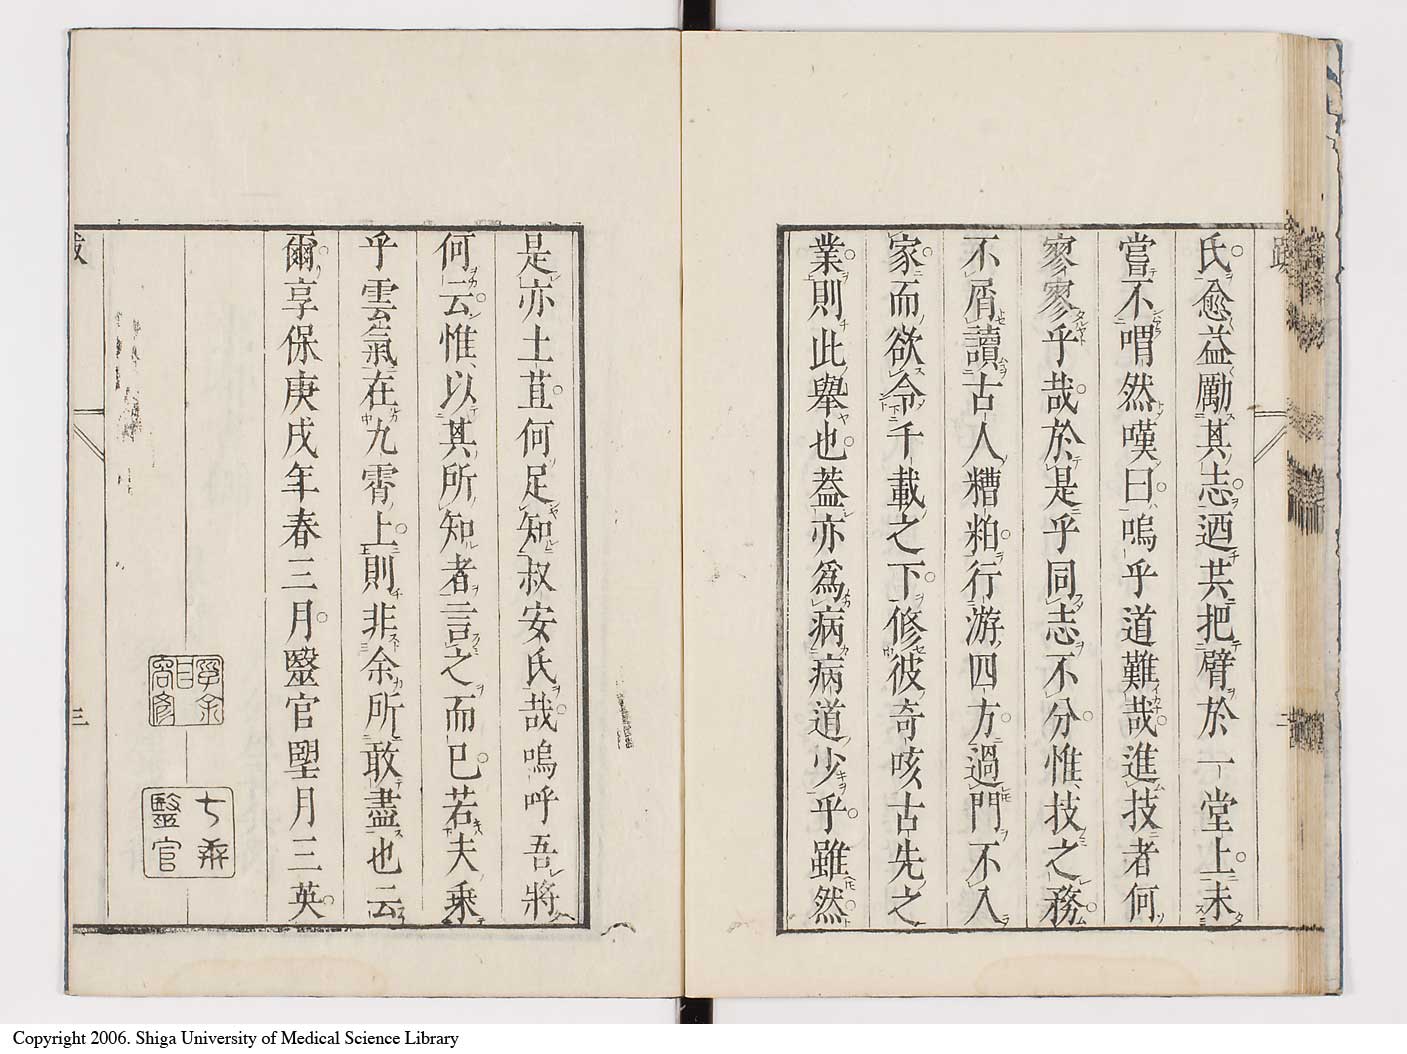 氏愈益勵其志迺共把臂於一堂上未
嘗不喟然嘆曰嗚乎道難哉進技者何
寥寥乎哉於是乎同志不分惟技之務
不屑讀古人糟粕行游四方過門不入
家而欲令千載之下修彼奇咳古先之
業則此舉也蓋亦爲病病道少乎雖然
是亦土苴何足知叔安氏哉嗚呼吾將
何云惟以其所知者言之而已若夫乘
乎雲氣在九霄上則非余所敢盡也云
爾享保庚戌年春三月毉官朢月三英
三
毉官
Copyright 2006. Shiga University of Medical Science Library